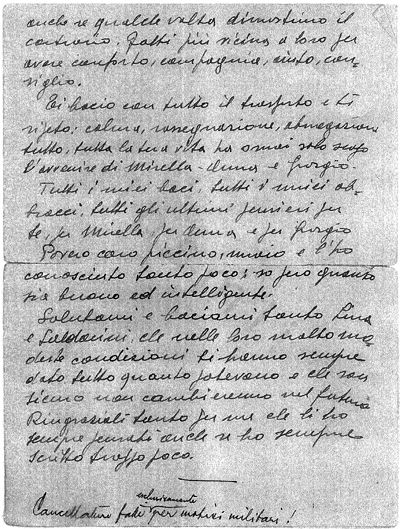 anche se qualche volta dimostrino il
contrario. Fatti più vicina a loro per
avere conforto, compagnia, aiuto, con-
siglio.
Ti bacio con tutto il trasporto e ti
ripeto: calma, rassegnazione, abnegazione
tutto, tutta la tua vita ha ormai solo scopo
l'avvenire di Mirella - Anna e Giorgio
Tutti i miei baci, tutti i miei ab-
bracci, tutti gli ultimi pensieri per
te, per Mirella, per Anna e per Giorgio
Povero caro piccino, muoio e l'ho
conosciuto tanto poco: so però quanto
sia buono ed intelligente.
Salutami e baciami tanto Lina
e Saldarini, che nelle loro molto mo-
deste condizioni ti hanno sempre
dato tutto quanto potevano e che son
sicuro non cambieranno nel futuro
Ringraziali tanto per me che li ho
sempre pensati anche se ho sempre
scritto troppo poco.
esclusivamente
Cancellature fatte per motivi militari!